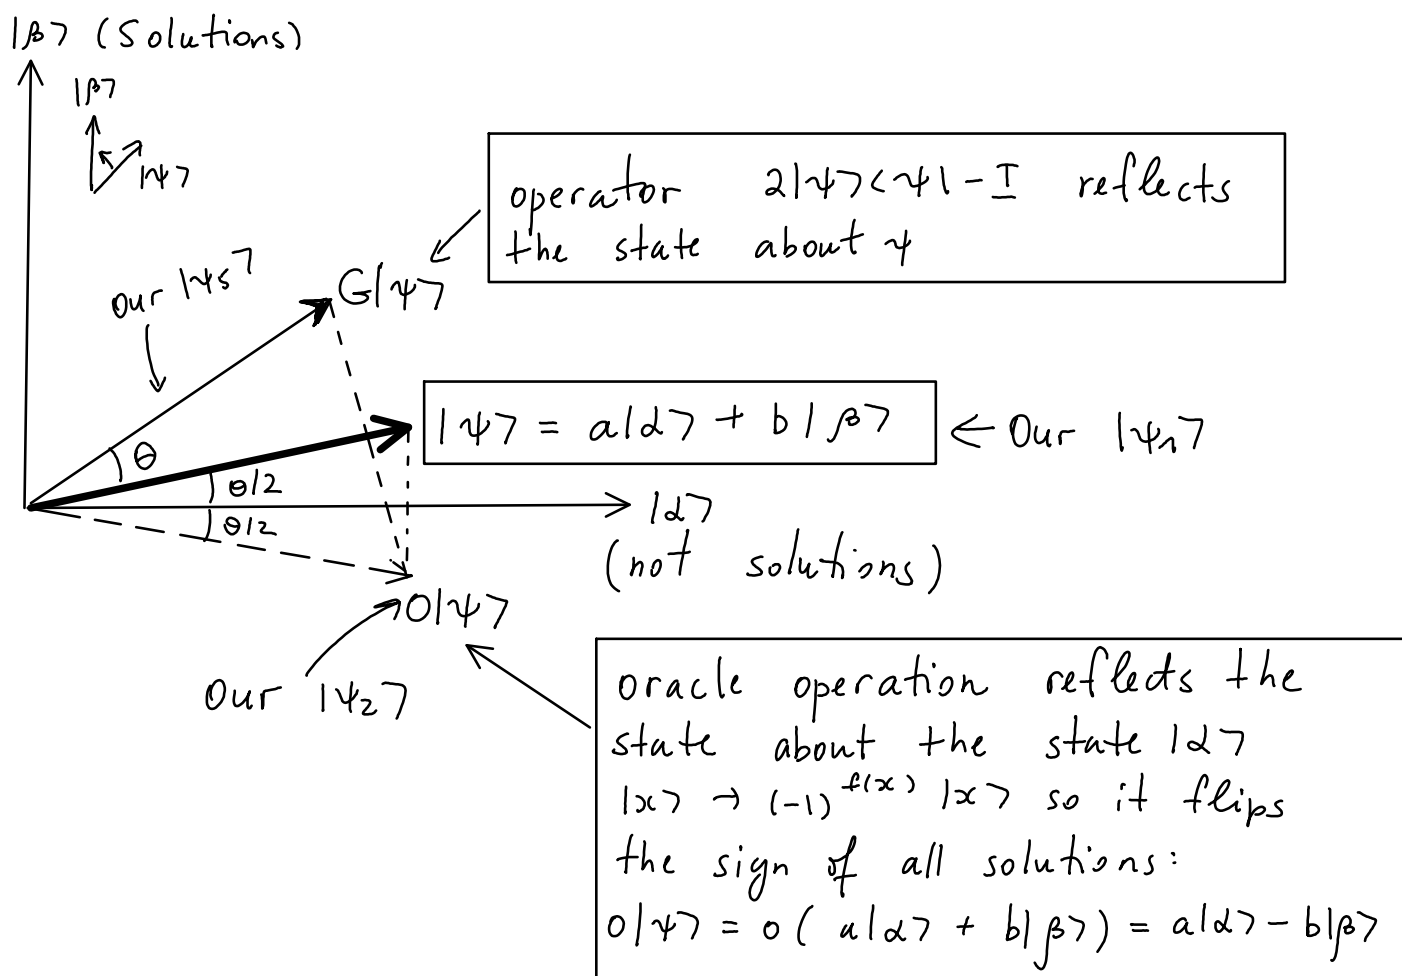 |β〉 (Solutions)
|β〉
|ψ〉
operator 2|ψ〉〈ψ| - I reflects
the state about ψ
our |ψ5〉
G|ψ〉
|ψ〉 = a|α〉 + b|β〉
← Our |ψ1〉
θ
θ/2
θ/2
|α〉
(not solutions)
O|ψ〉
Our |ψ2〉
oracle operation reflects the
state about the state |α〉
|x〉 → (-1)^f(x) |x〉 so it flips
the sign of all solutions:
O|ψ〉 = O( a|α〉 + b|β〉) = a|α〉 - b|β〉